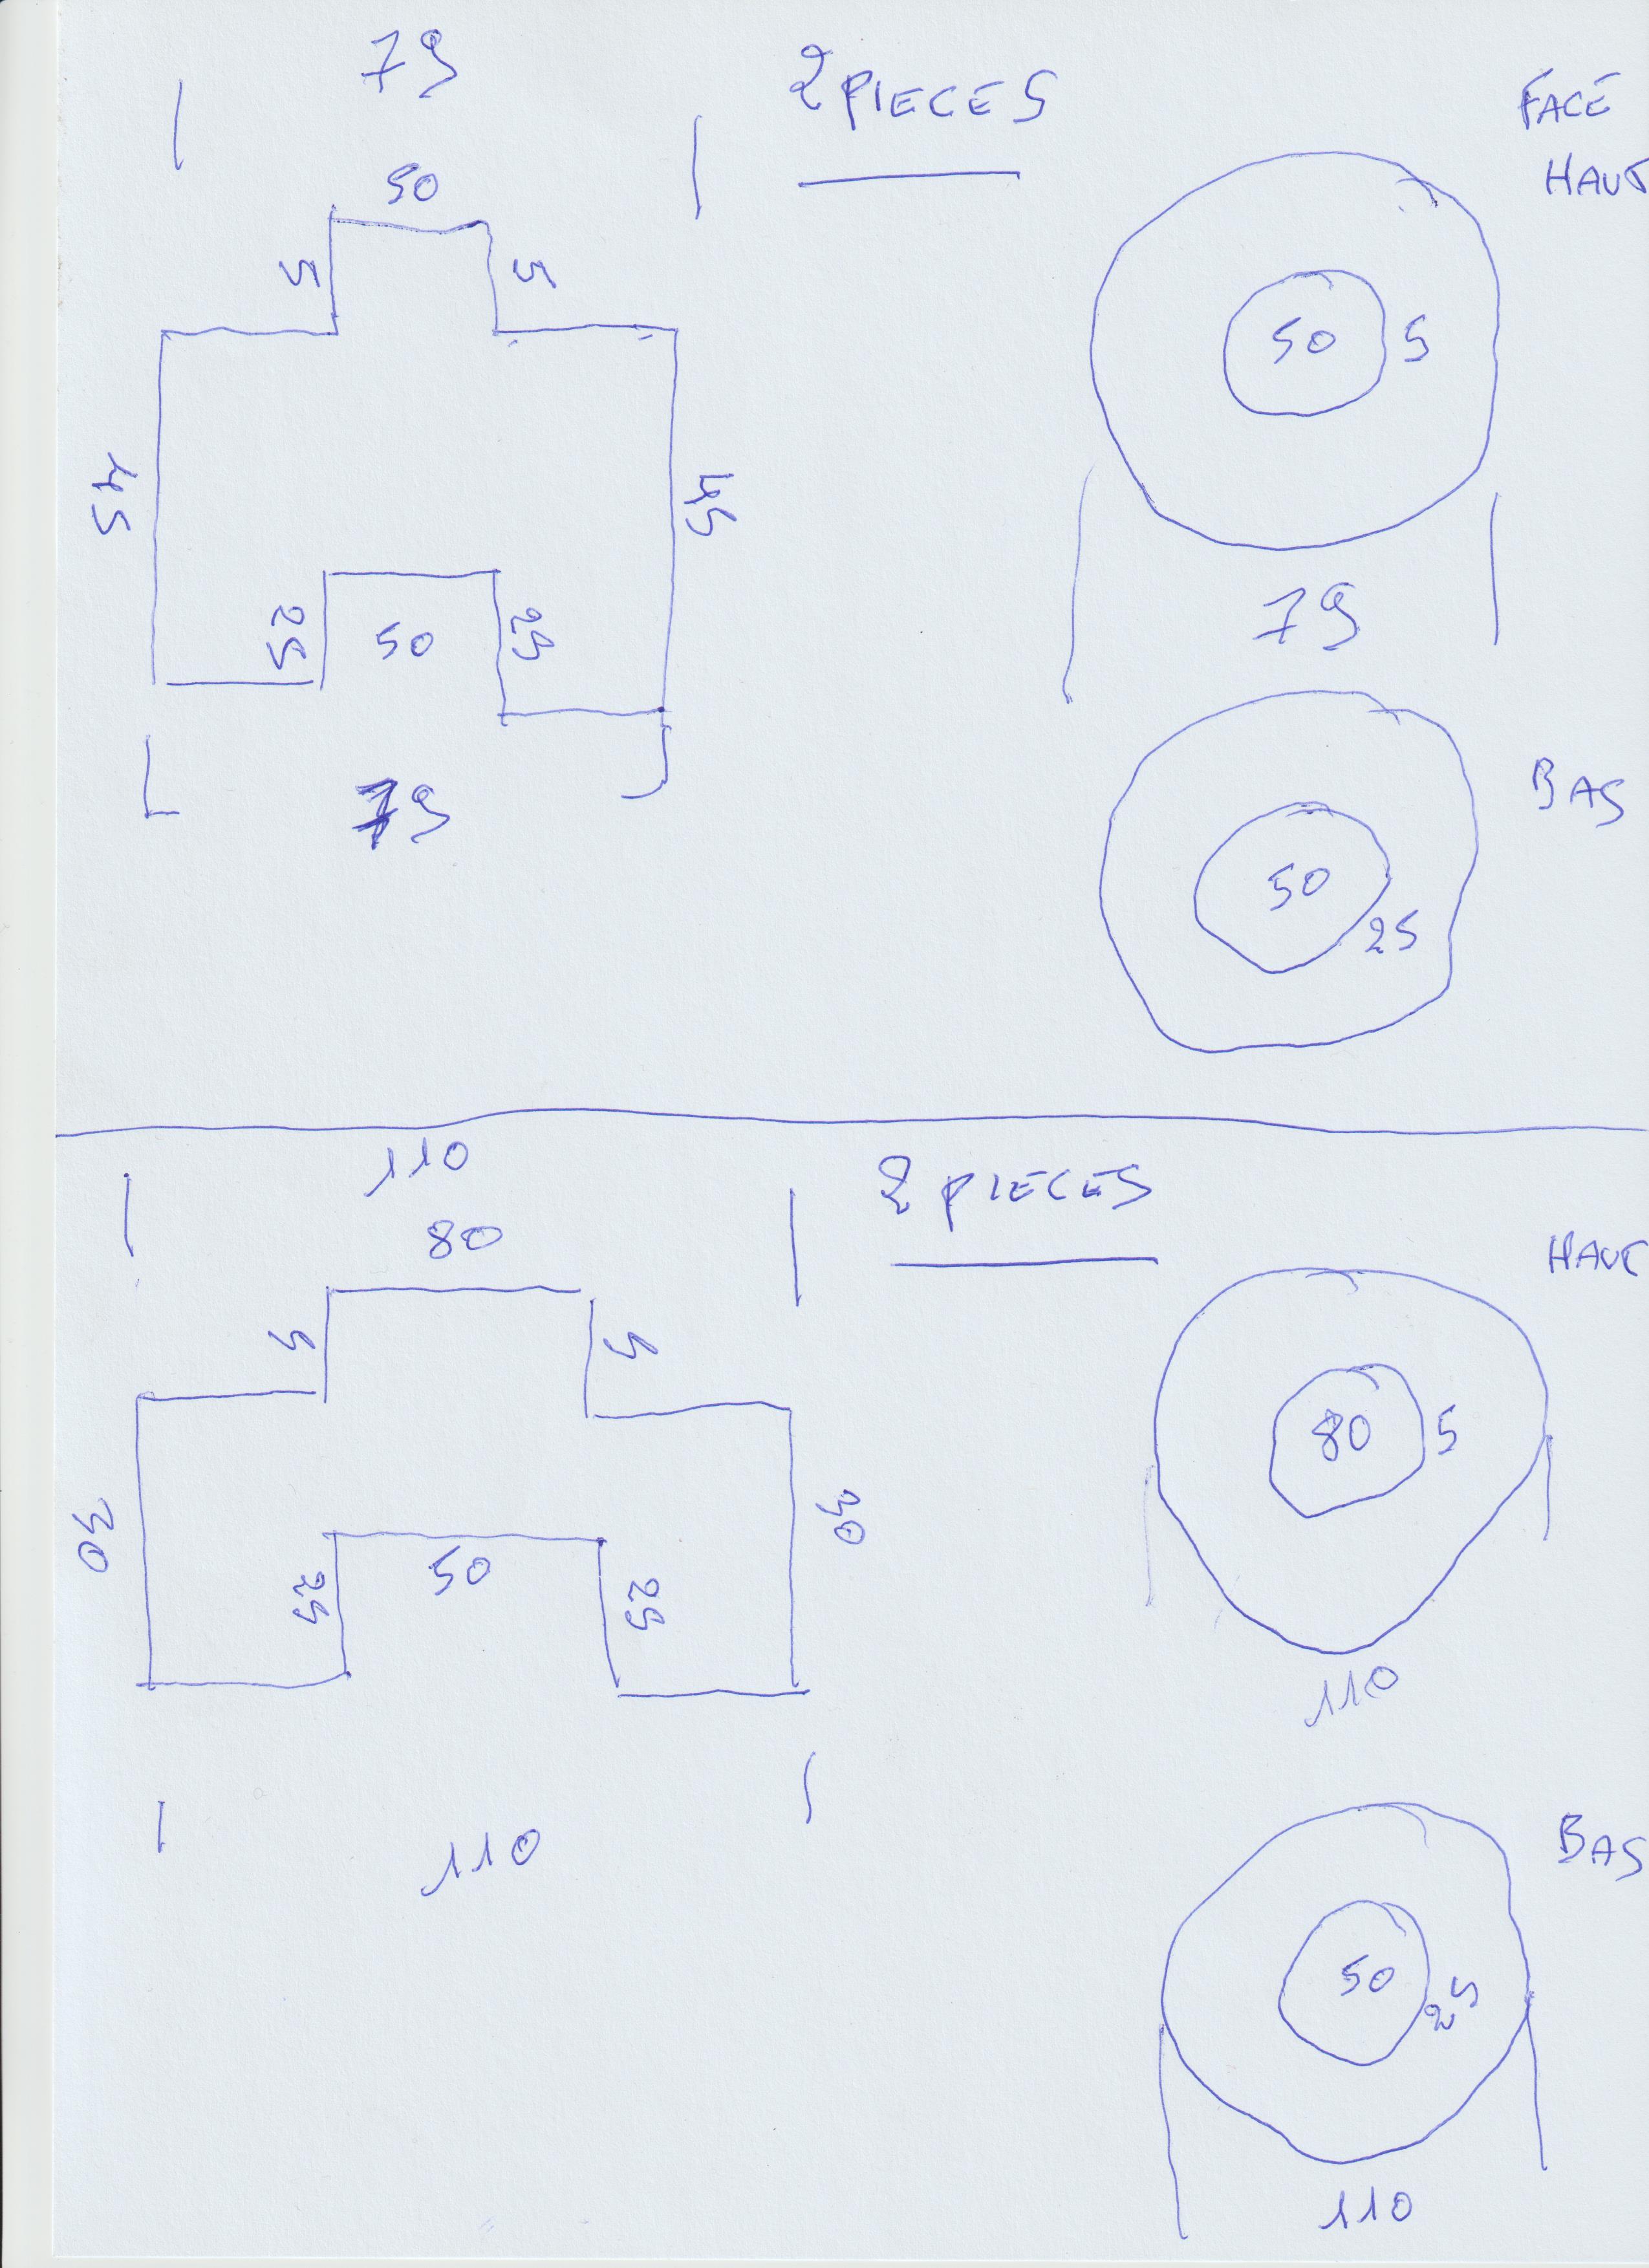 79
2 PIECES
FACE
HAUT
50
5
5
50
5
45
45
79
25
50
25
79
BAS
50
25
110
2 PIECES
80
HAUT
5
5
80
5
30
30
50
25
25
110
110
BAS
50
25
110